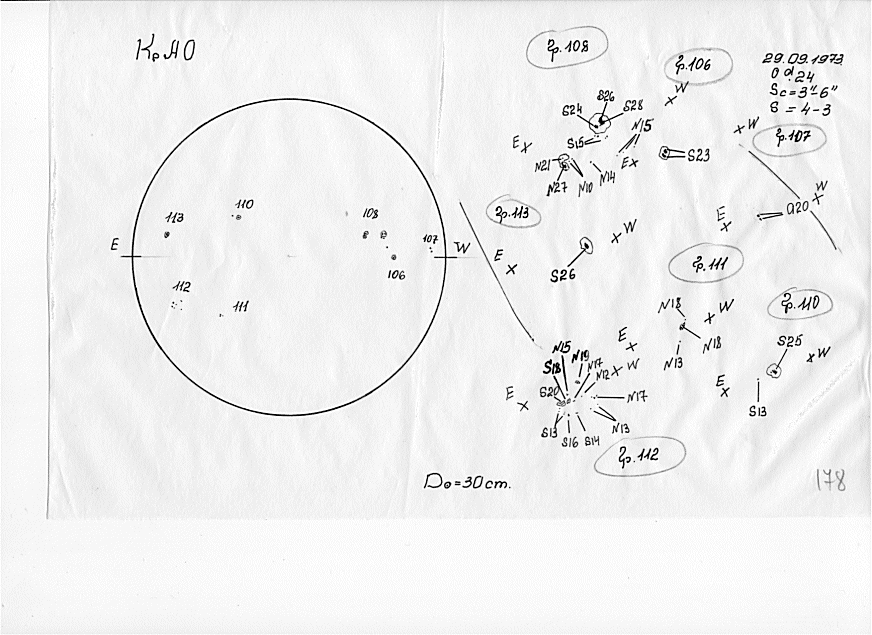 КрАО
29.09.1973
0d.24
Sc=3"-6"
S = 4-3
гр.108
гр.106
гр.107
S26
S24
S28
W
N15
W
E
S15
S23
N21
E
N27
N10
N14
W
гр.113
E
a20
113
110
108
E
W
107
106
112
111
E
W
S26
гр.111
гр.110
N18
W
N18
N13
S25
W
E
S13
E
N15
N19
S18
N17
N12
W
E
S20
N17
S13
S16
S14
N13
гр.112
D⊙=30cm.
178